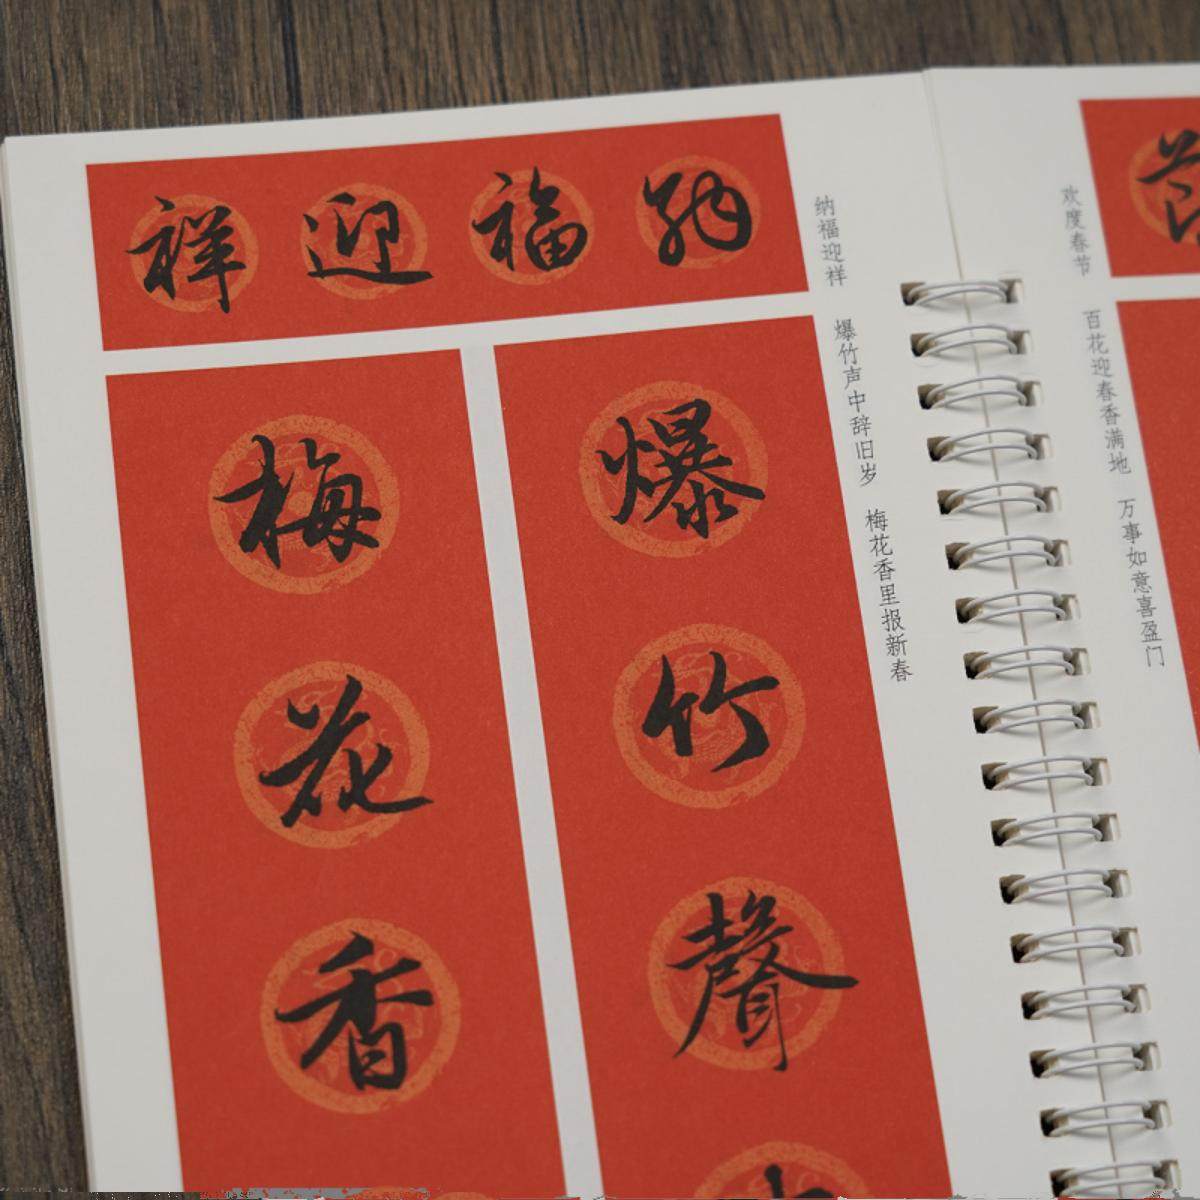 祥迎福納
爆竹聲
梅花香
纳福迎祥
爆竹声中辞旧岁
梅花香里报新春
欢度春节
百花迎春香满地
万事如意喜盈门